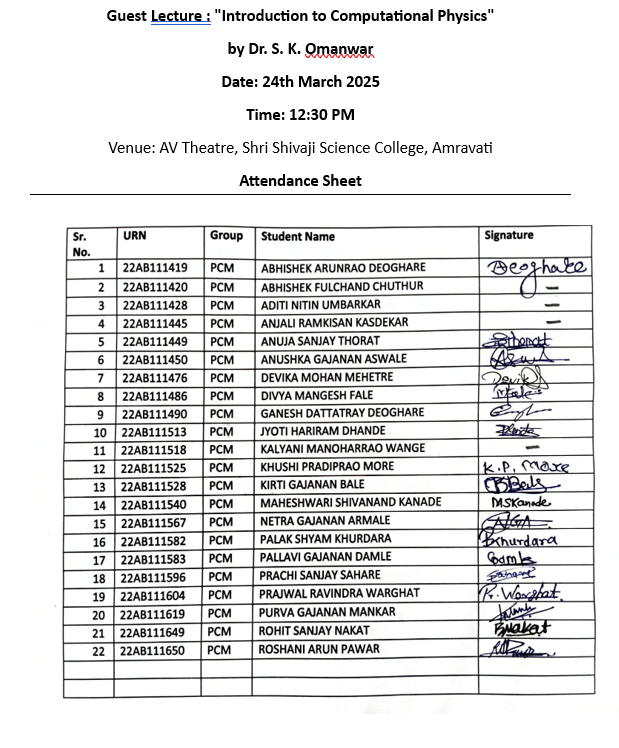 Guest Lecture : "Introduction to Computational Physics"
by Dr. S. K. Omanwar
Date: 24th March 2025
Time: 12:30 PM
Venue: AV Theatre, Shri Shivaji Science College, Amravati
Attendance Sheet
Sr. No. URN Group Student Name Signature
1 22AB111419 PCM ABHISHEK ARUNRAO DEOGHARE Deoghate
2 22AB111420 PCM ABHISHEK FULCHAND CHUTHUR —
3 22AB111428 PCM ADITI NITIN UMBARKAR —
4 22AB111445 PCM ANJALI RAMKISAN KASDEKAR —
5 22AB111449 PCM ANUJA SANJAY THORAT
6 22AB111450 PCM ANUSHKA GAJANAN ASWALE
7 22AB111476 PCM DEVIKA MOHAN MEHETRE
8 22AB111486 PCM DIVYA MANGESH FALE
9 22AB111490 PCM GANESH DATTATRAY DEOGHARE
10 22AB111513 PCM JYOTI HARIRAM DHANDE
11 22AB111518 PCM KALYANI MANOHARRAO WANGE —
12 22AB111525 PCM KHUSHI PRADIPRAO MORE K.P. More
13 22AB111528 PCM KIRTI GAJANAN BALE
14 22AB111540 PCM MAHESHWARI SHIVANAND KANADE MSKanade
15 22AB111567 PCM NETRA GAJANAN ARMALE
16 22AB111582 PCM PALAK SHYAM KHURDARA
17 22AB111583 PCM PALLAVI GAJANAN DAMLE
18 22AB111596 PCM PRACHI SANJAY SAHARE
19 22AB111604 PCM PRAJWAL RAVINDRA WARGHAT
20 22AB111619 PCM PURVA GAJANAN MANKAR
21 22AB111649 PCM ROHIT SANJAY NAKAT
22 22AB111650 PCM ROSHANI ARUN PAWAR